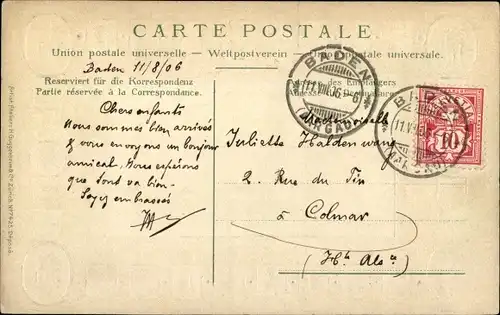 CARTE POSTALE.
Union postale universelle. — Weltpostverein — Unione postale universale.
Baden 11/8/06
Reserviert für die Korrespondenz
Partie réservée à la Correspondance.
Chers enfants
Nous sommes bien arrivés
& vous envoyons un bonjour
amical, Nous espérons
que tout va bien.
Soyez embrassés
BADEN
11.VIII.06
(AARGAU)
Mademoiselle
Juliette Haldenwang
2. Rue du Pin
à Colmar
(Hte Alsce)
BADEN
11.VIII
(AARGAU)
10